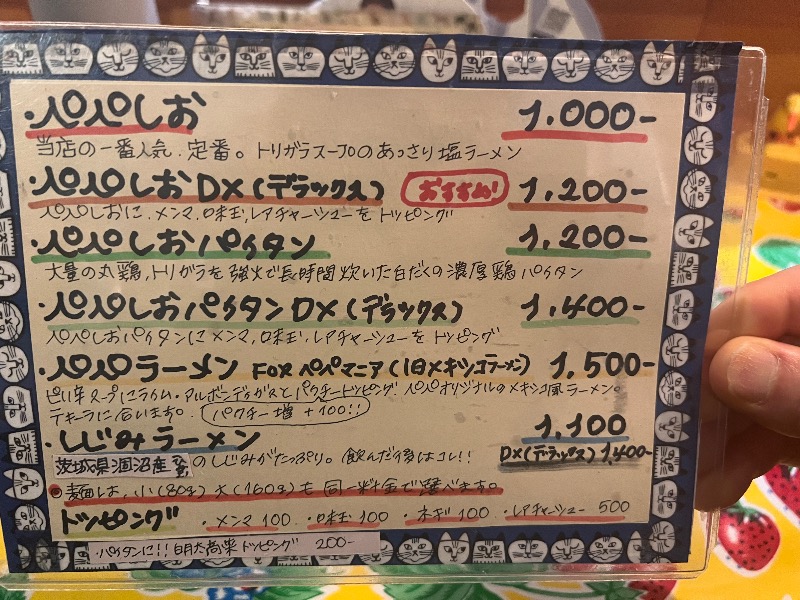 ・ペペしお 1.000-
当店の一番人気、定番。トリガラスープのあっさり塩ラーメン
・ペペしおDX(デラックス) おすすめ! 1.200-
ペペしおに、メンマ、味玉、レアチャーシューをトッピング
・ペペしおパイタン 1.200-
大量の丸鶏、トリガラを強火で長時間炊いた白だくの濃厚鶏パイタン
・ペペしおパイタンDX(デラックス) 1.400-
ペペしおパイタンにメンマ、味玉、レアチャーシューをトッピング
・ペペラーメン FOR ペペマニア(旧メキシコラーメン) 1,500-
ピリ辛スープにライム・アルボンディガスとパクチートッピング ペペオリジナルのメキシコ風ラーメン。
テキーラに合います。 パクチー増 +100!!
・しじみラーメン 1,100
茨城県涸沼産 のしじみがたっぷり。飲んだ後はコレ!!
DX(デラックス) 1,400-
麺は、小(80g)大(160g)も同一料金で選べます。
トッピング ・メンマ100 ・味玉100 ・ネギ100 ・レアチャーシュー 500
・パイタンに!! 明太高菜トッピング 200-